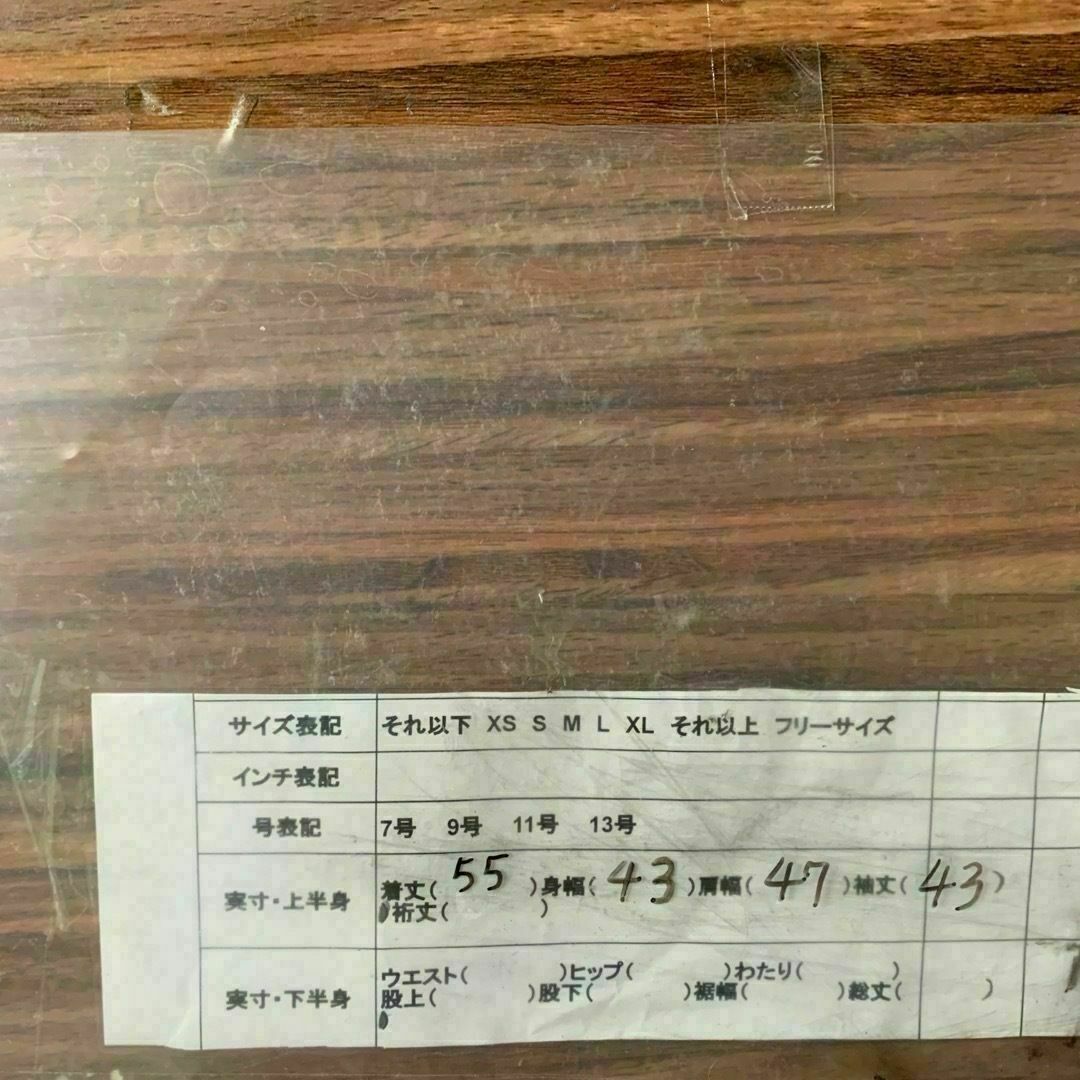 サイズ表記 それ以下 XS S M L XL それ以上 フリーサイズ
インチ表記
号表記 7号 9号 11号 13号
実寸・上半身 着丈( 55 )身幅( 43 )肩幅( 47 )袖丈( 43 )
裄丈( )
実寸・下半身 ウエスト( )ヒップ( )わたり( )
股上( )股下( )裾幅( )総丈( )